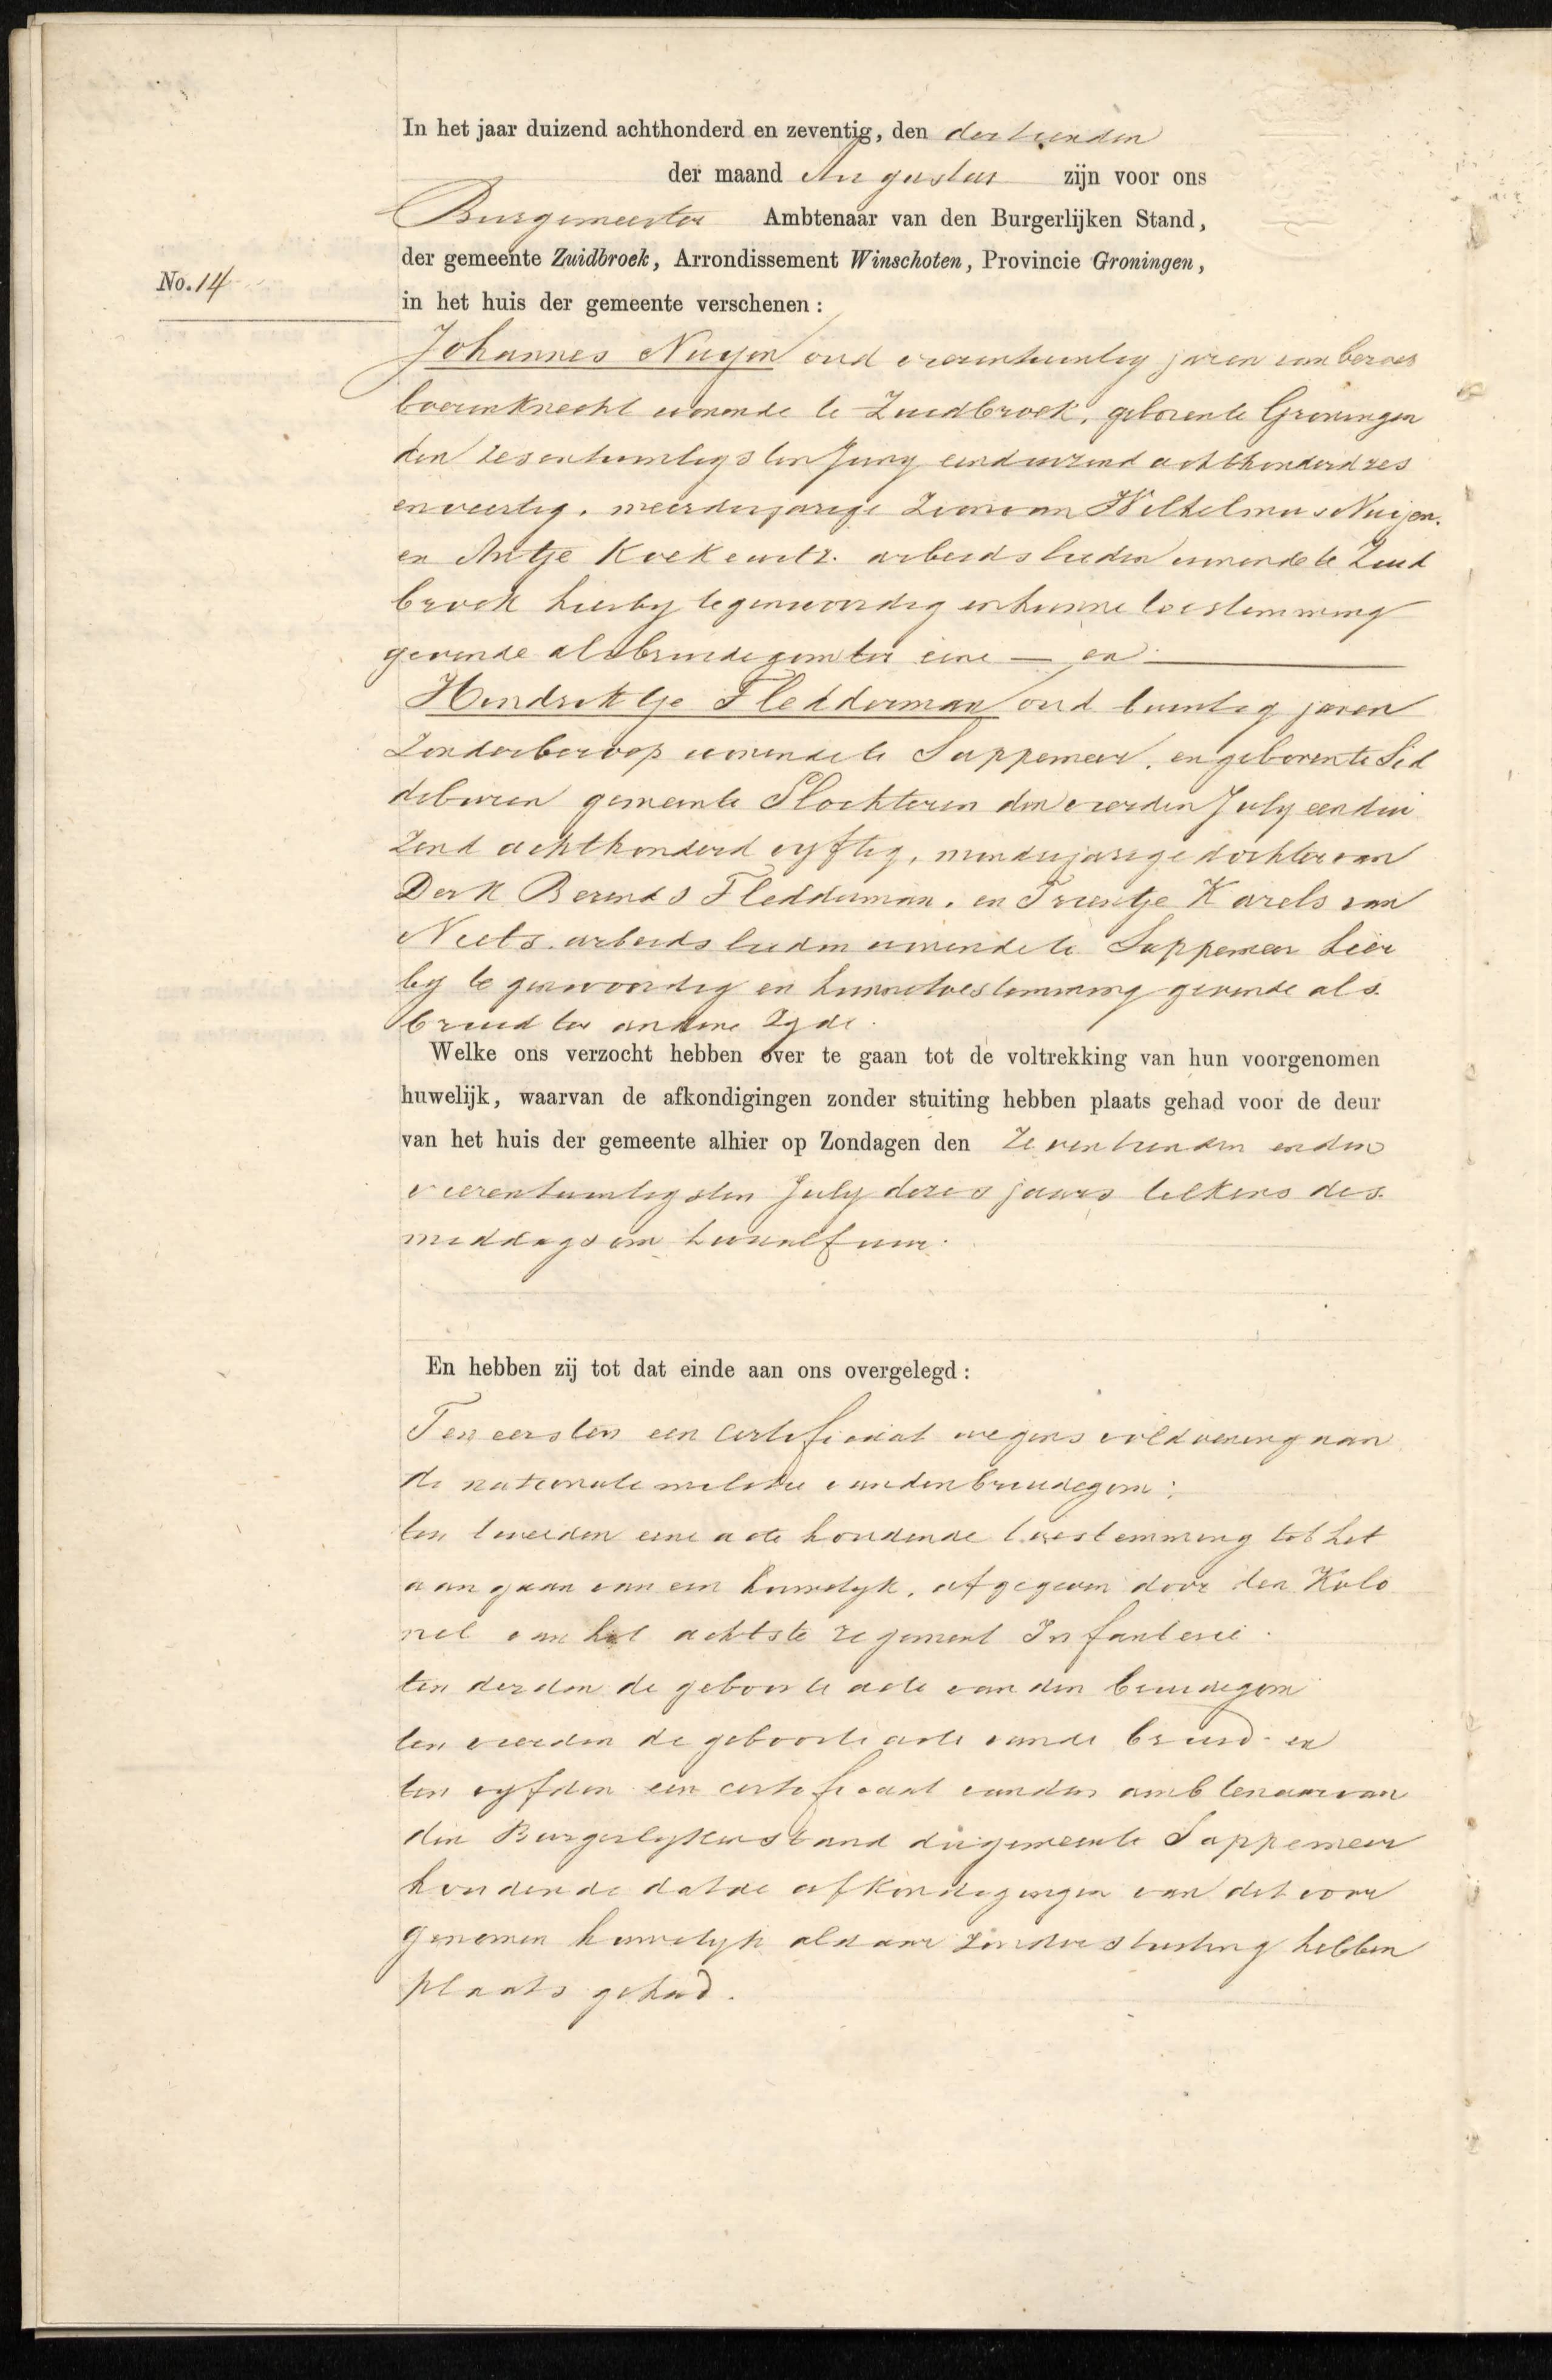 In het jaar duizend achthonderd en zeventig, den dertienden
der maand Augustus zijn voor ons
Burgemeester Ambtenaar van den Burgerlijken Stand,
der gemeente Zuidbroek, Arrondissement Winschoten, Provincie Groningen,
No. 14
in het huis der gemeente verschenen :
Johannes Nuyen oud vierentwintig jaren van beroep
boerenknecht wonende te Zuidbroek, geboren te Groningen
den zesentwintigsten Juny eenduizend achthonderd zes
en veertig, meerderjarige Zoon van Wilhelmus Nuijen.
en Antje arbeidslieden wonende te Zuid
broek hierby tegenwoordig en hunne toestemming
gevende als bruidegom ter eene — en —
Hendrektje Fledderman oud twintig jaren
Zonder beroep wonende te Sappemeer, en geboren te Sid
deburen gemeente Slochteren den vierden July eendui
zend achthonderd vyftig, minderjarige dochter van
Derk Berends Fledderman, en Trientje Karels van
Neets arbeidslieden wonende te Sappemeer hier
by tegenwoordig en hunne toestemming gevende als
bruid ter andere Zyde.
Welke ons verzocht hebben over te gaan tot de voltrekking van hun voorgenomen
huwelijk, waarvan de afkondigingen zonder stuiting hebben plaats gehad voor de deur
van het huis der gemeente alhier op Zondagen den Zeventienden en den
vierentwintigsten July dezes jaars telkens des
middags om twaalf uur.
En hebben zij tot dat einde aan ons overgelegd :
Ten eersten een certificaat wegens voldoening aan
de nationale militie van den bruidegom ;
ten tweeden eene acte houdende toestemming tot het
aangaan van een huwelyk, afgegeven door den Kolo
nel van het achtste regement Infanterie.
ten derden de geboorte acte van den bruidegom
ten vierden de geboorte acte van de bruid en
ten vyfden een certificaat van den ambtenaar van
den Burgerlyken stand der gemeente Sappemeer
houdende dat de afkondigingen van dit voor
genomen huwelyk aldaar zonder stuiting hebben
plaats gehad.